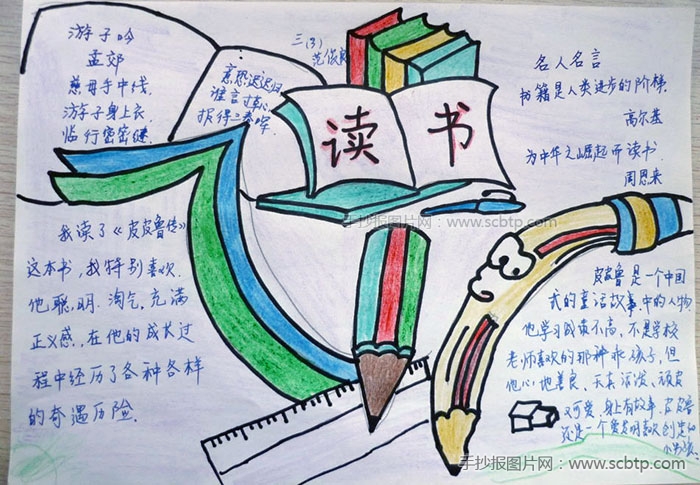 游子吟
孟郊
慈母手中线
游子身上衣
临行密密缝
意恐迟迟归
谁言寸草心
报得三春晖
三(3)
读书
名人名言
书籍是人类进步的阶梯
高尔基
为中华之崛起而读书
周恩来
手抄报图片网:www.scbtp.com
我读了《皮皮鲁传》
这本书,我特别喜欢.
他聪.明.淘气,充满
正义感,在他的成长过
程中经历了各种各样
的奇遇历险.
皮皮鲁是一个中国
式的童话故事.中的人物
他学习成绩不高,不是学校
老师喜欢的那种乖孩子,但
他心地善良、天真活泼、顽皮
又可爱.身上有故事.皮皮鲁
还是一个爱发明喜欢创造的
手抄报图片网:www.scbtp.com